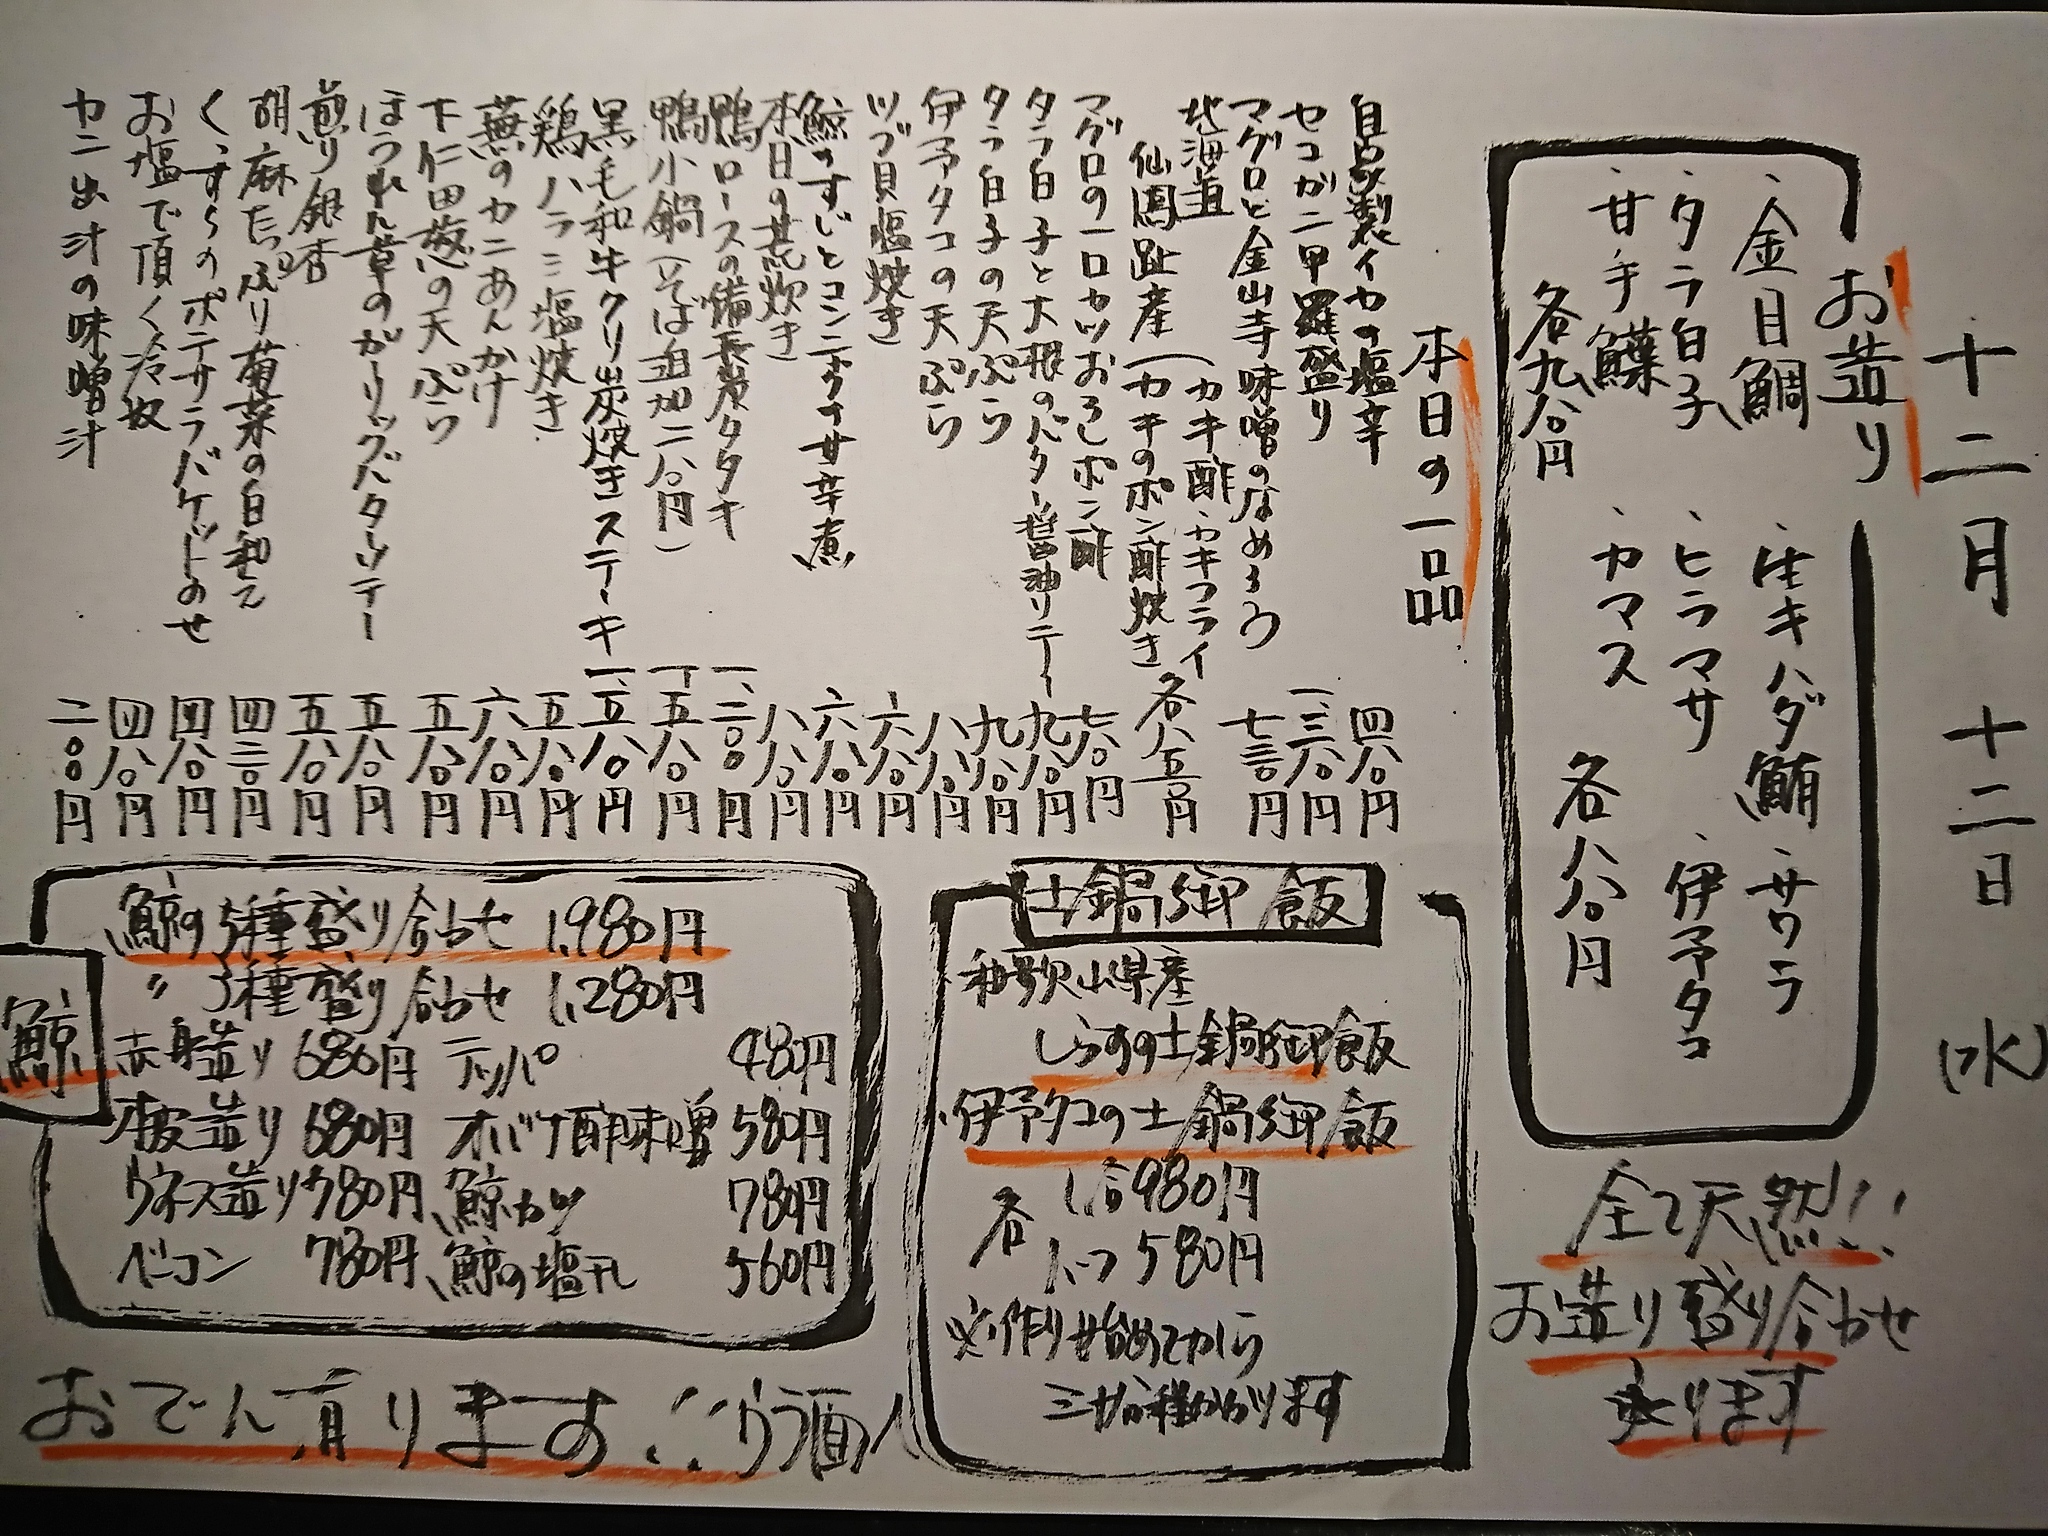 十二月 十二日 (水)
お造り
、金目鯛 、生キハダ鮪 、サワラ
、タラ白子 、ヒラマサ 、伊予タコ
、甘手鰈 、カマス
各九八〇円 各八八〇円
全て天然!!
お造り盛り合わせ
承ります
本日の一品
自家製イカの塩辛 四八〇円
セコガニ甲羅盛り 一、三八〇円
マグロと金山寺味噌のなめろう 七三〇円
北海道
仙鳳趾産(カキ酢、カキフライ
(カキのポン酢焼き 各八五〇円
マグロの一口カツおろしポン酢 七八〇円
タラ白子と大根のバター醤油ソテー 九八〇円
タラ白子の天ぷら 九八〇円
伊予タコの天ぷら 八八〇円
ツブ貝塩焼き 六八〇円
鯨のすじとコンニャクの甘辛煮 六八〇円
本日の荒炊き 八八〇円
鴨ロースの備長炭タタキ 一、二〇〇円
鴨小鍋(そば追加二八〇円) 一、五八〇円
黒毛和牛クリ炭焼きステーキ 一、五八〇円
鶏ハラミ塩焼き 五八〇円
蕪のカニあんかけ 六八〇円
下仁田葱の天ぷら 五八〇円
ほうれん草のガーリックバターソテー 五八〇円
煎り銀杏 五八〇円
胡麻たっぷり菊菜の白和え 四三〇円
くんすらのポテサラバケットのせ 四八〇円
お塩で頂く冷奴 四八〇円
カニ出汁の味噌汁 二〇〇円
土鍋御飯
和歌山県産
しらすの土鍋御飯
伊予タコの土鍋御飯
各 1合980円
ハーフ580円
※作り始めてから
三十分程かかります
鯨
鯨の5種盛り合わせ 1,980円
〃 3種盛り合わせ 1,280円
赤身造り 680円 テッパ 480円
本皮造り 680円 オバケ酢味噌 580円
ウネス造り 780円 鯨カツ 780円
ベーコン 780円 鯨の塩干し 560円
おでん有ります!!ウラ面へ